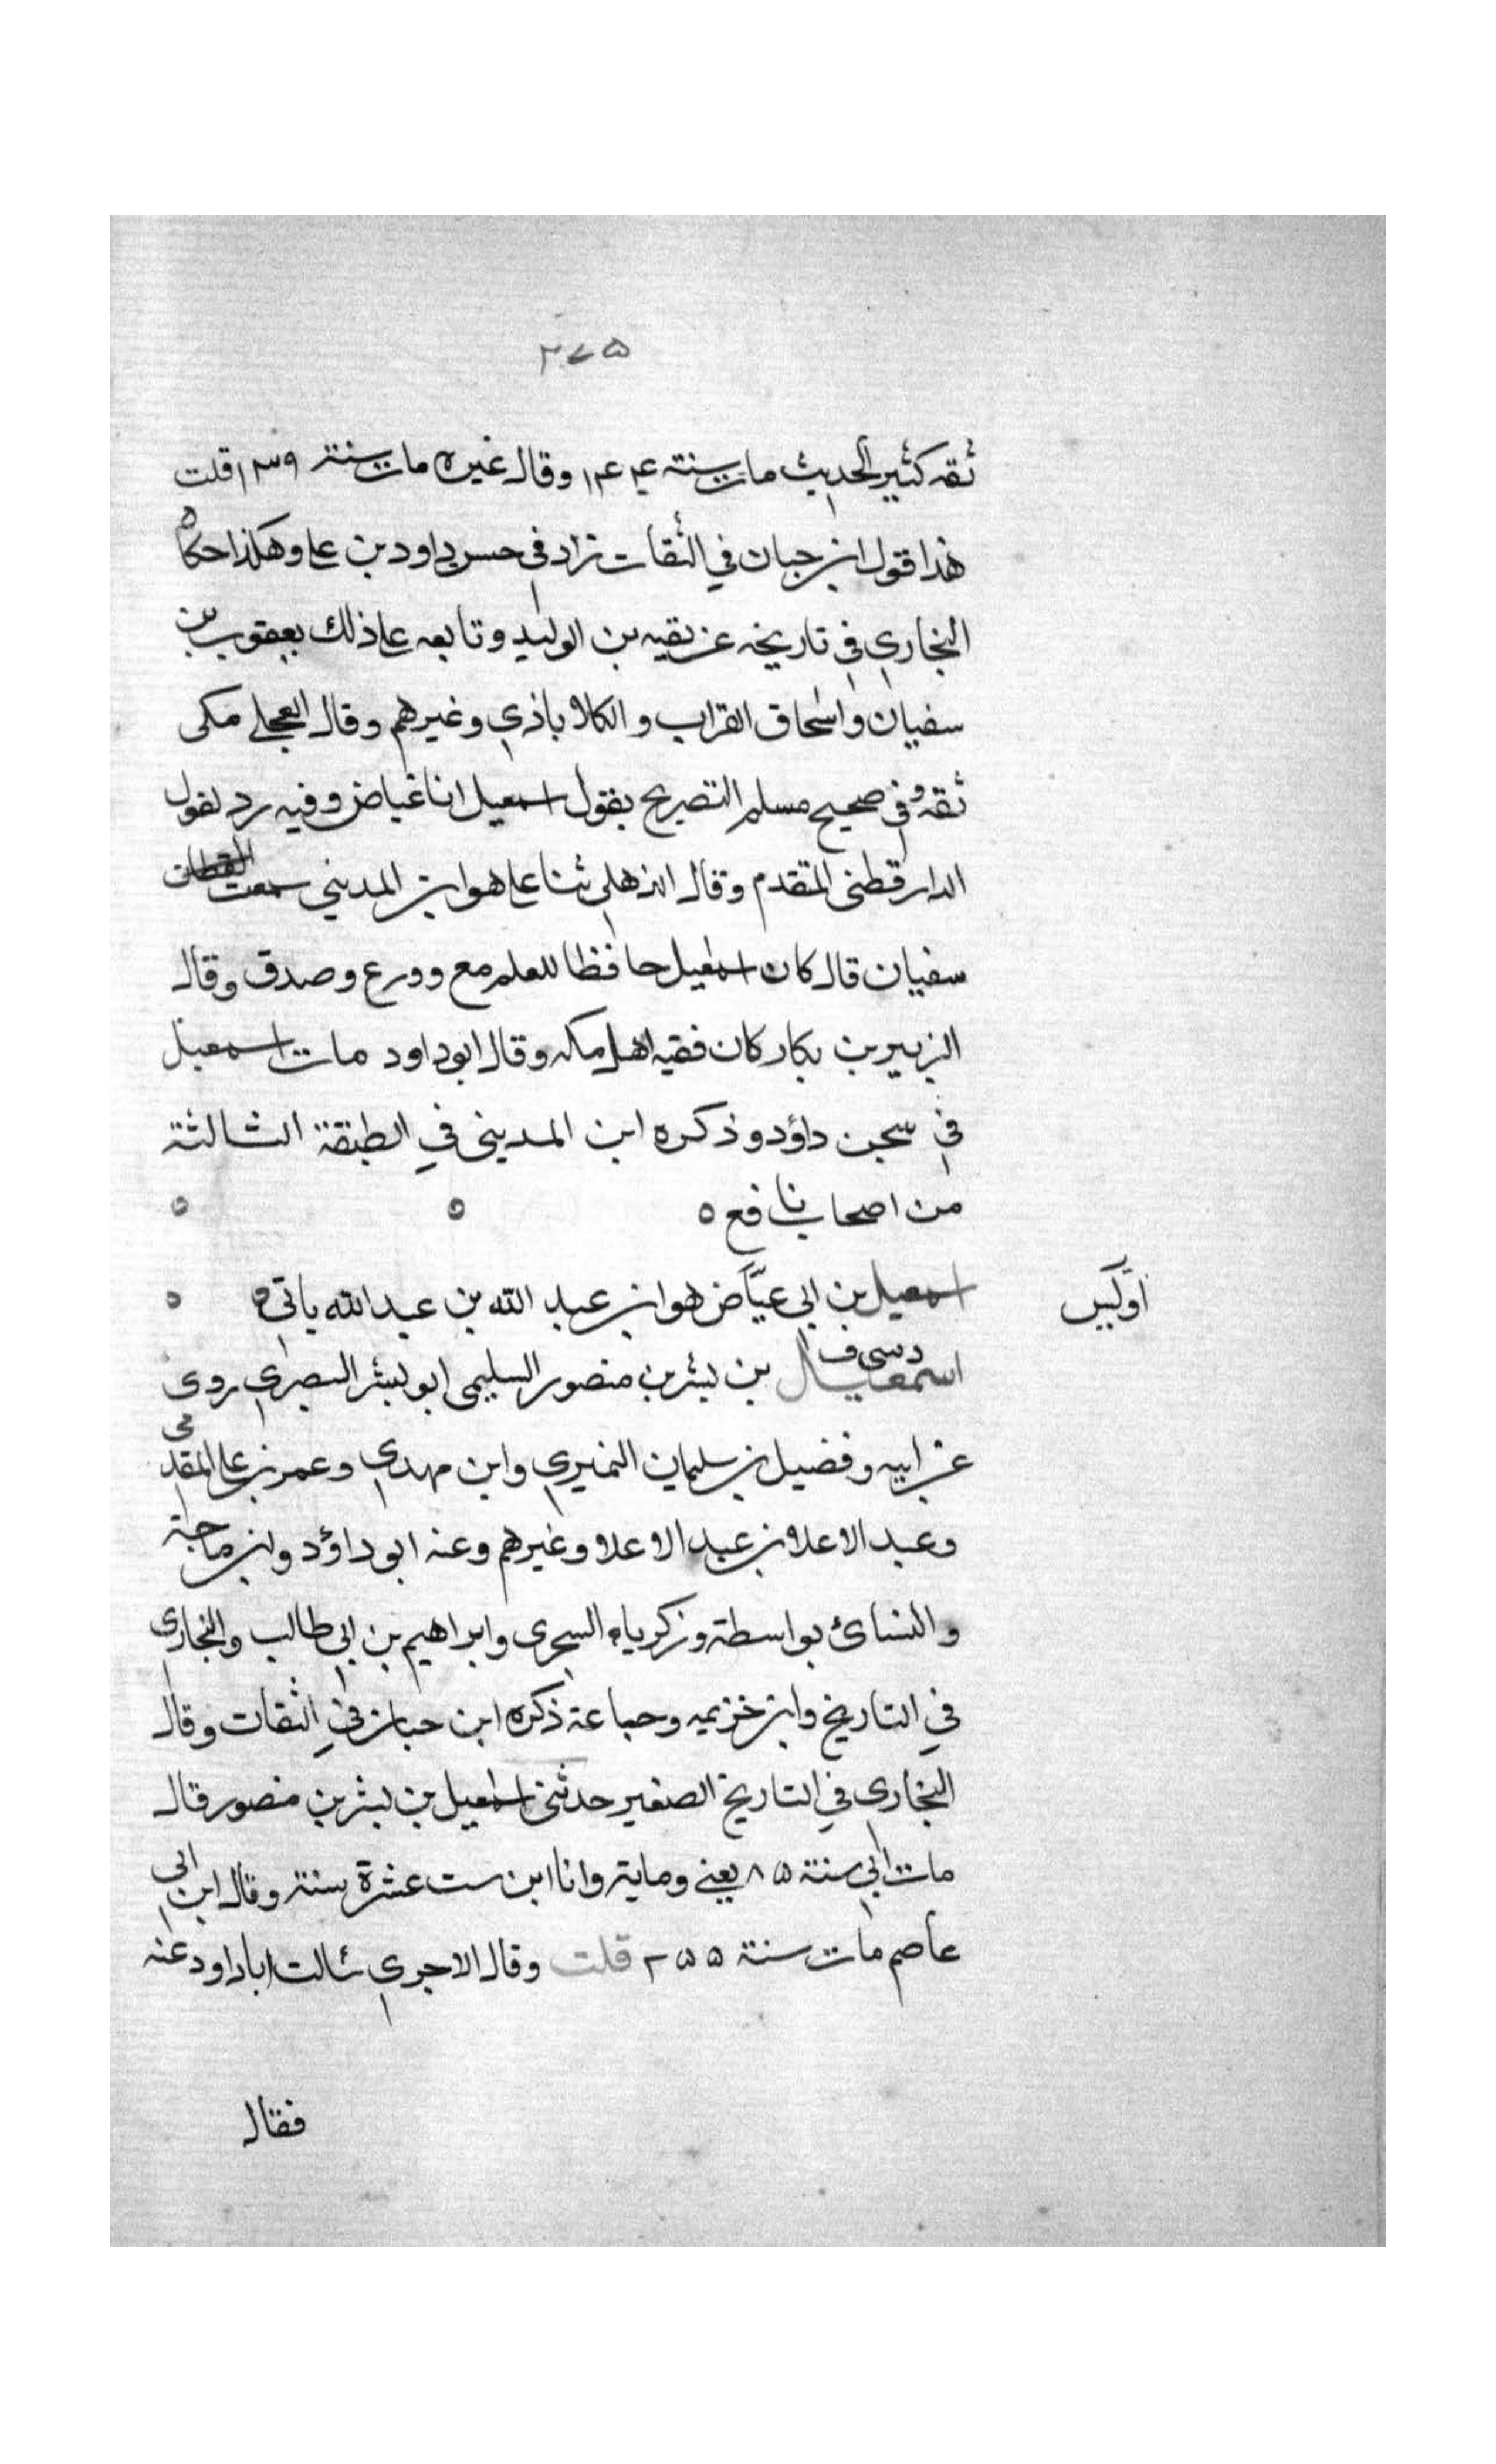 ٢٧٥
ثقه كثير الحديث مات سنته ١٤٤ وقال غيره مات سنته ١٣٩ قلت
هذا قول ابن حبان في الثقات زاد في حبس داود بن علي وهكذا حكاه
البخاري في تاريخه عن بقيه بن الوليد وتابعه على ذلك يعقوب بن
سفيان واسحاق القراب والكلاباذي وغيرهم وقال العجلي مكي
ثقه وفي صحيح مسلم التصريح بقول اسمعيل انا عياض وفيه رد لقول
الدارقطني المتقدم وقال الذهلي ثنا علي هو ابن المديني سمعت
سفيان قال كان اسمعيل حافظا للعلم مع وورع وصدق وقال
الزبير بن بكار كان فقيه اهل مكه وقال ابو داود مات اسمعيل
في سجن داؤد وذكره ابن المديني في الطبقة الثالثة
من اصحاب نافع ٥
اسمعيل بن ابي عيّاض هو ابن عبد الله بن عبد الله ياتي ٥
اسمعيل بن بشر بن منصور السليمي ابو بشر البصري روى
عن ابيه وفضيل بن سليمان النميري وابن مهدي وعمر بن علي المقدمي
وعبد الاعلا بن عبد الاعلا وغيرهم وعنه ابو داؤد وابن ماجة
والنسائ بواسطة وزكرياء السجزى وابراهيم بن ابي طالب والبخاري
في التاريخ وابن خزيمه وجماعة ذكره ابن حبان في الثقات وقال
البخاري في التاريخ الصغير حدثني اسمعيل بن بشر بن منصور قال
مات ابي سنة ٨٥ يعني وماية وانا ابن ست عشرة سنة وقال ابن ابي
عاصم مات سنة ٢٥٥ قلت وقال الاجري سالت ابا داود عنه
فقال